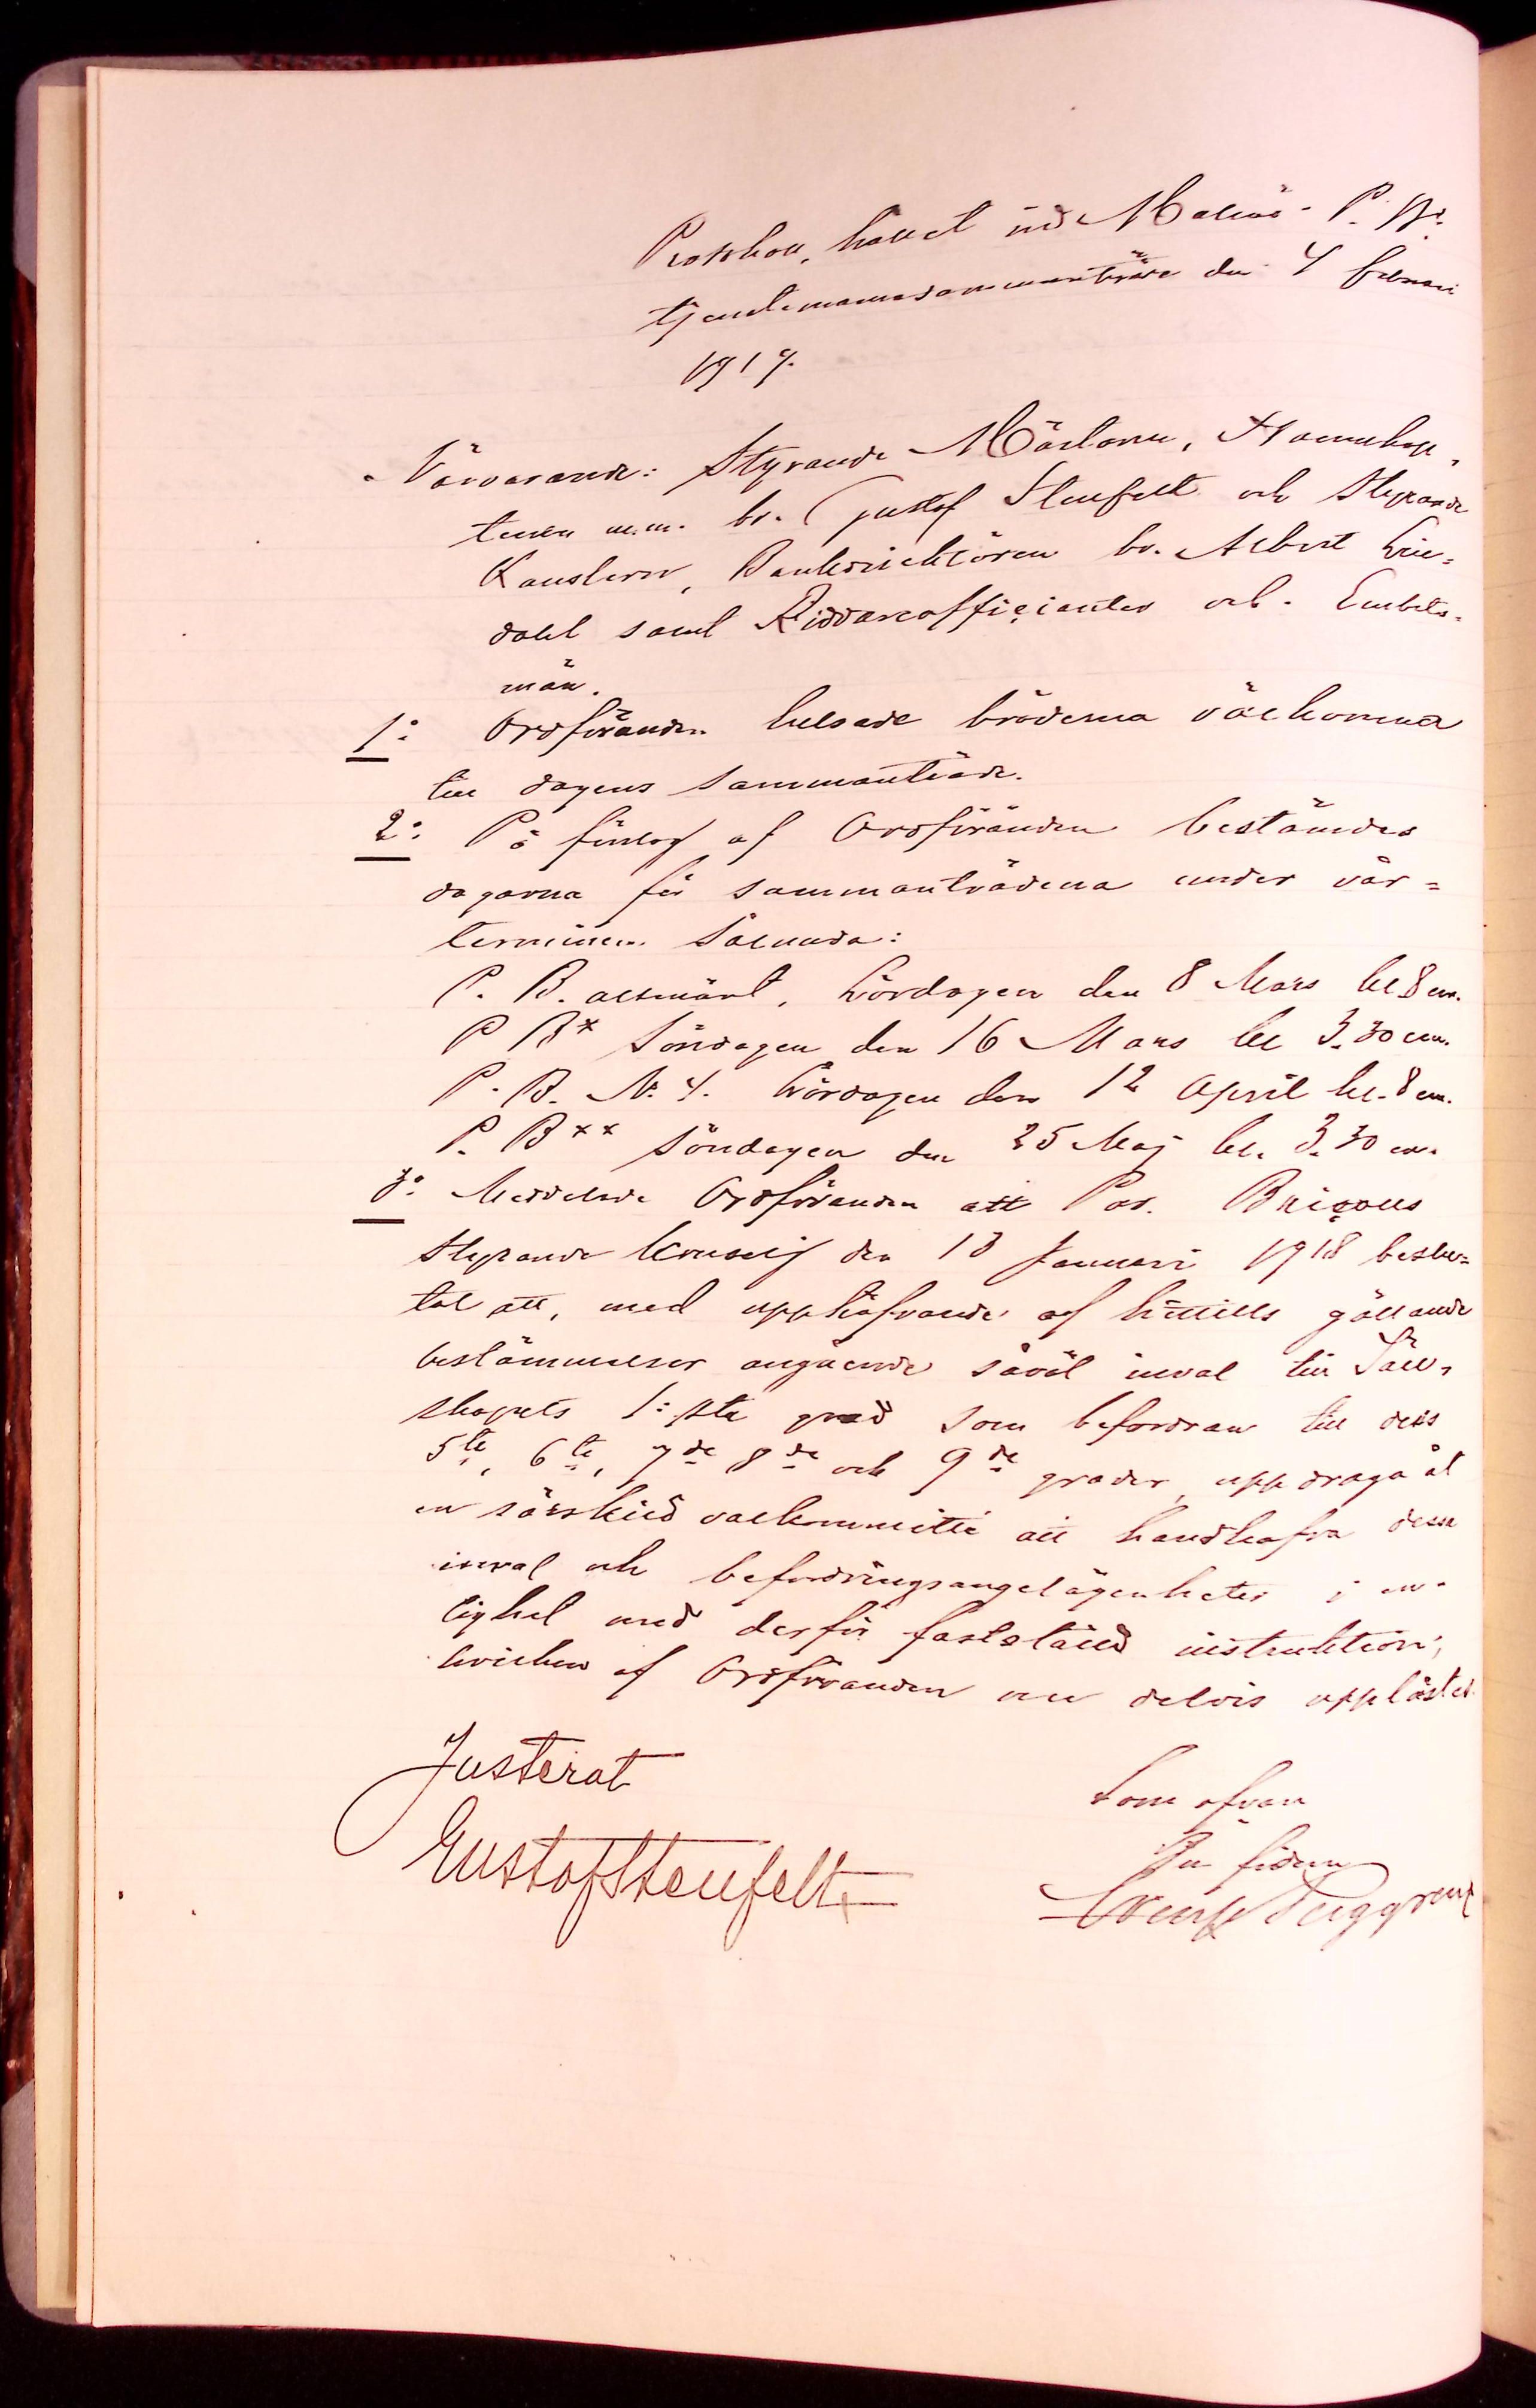 Protokoll, hållet vid Malmö P. B:s
tjenstemannasammanträde den 4 februari
1919.
Närvarande: Styrande Mästaren, Hamnkap-
tenen m.m. br. Gustof Stenfelt och Styrande
Kanslern, Bankdirektören br. Albert Lin-
dahl samt Riddareofficianter och Embets-
män.
1: Ordföranden helsade bröderna välkomna
till dagens sammanträde.
2: På förslag af Ordföranden bestämdes
dagarna för sammanträdena under vår-
terminen sålunda:
P. B. allmänt, Lördagen den 8 Mars kl 8 em.
P B* Söndagen den 16 Mars kl 3.30 em.
P. B. N: 4. Lördagen den 12 April kl. 8 em.
P. B** Söndagen den 25 Maj kl. 3.30 em.
3: Meddelade Ordföranden att Par. Briçolls
Styrande Konselj den 13 Januari 1918 beslu-
tat att, med upphäfvande af hittills gällande
bestämmelser angående såväl inval till Säll-
skapets 1:sta grad som befordran till dess
5te, 6te, 7de 8de och 9de grader, uppdraga åt
en särskild valkommitté att handhafva dessa
inval och befordringsangelägenheter i en-
lighet med derför fastställd instruktion,
hvilken af Ordföranden nu delvis upplästes.
Justerat
Som ofvan
In fidem
Gustof Stenfelt